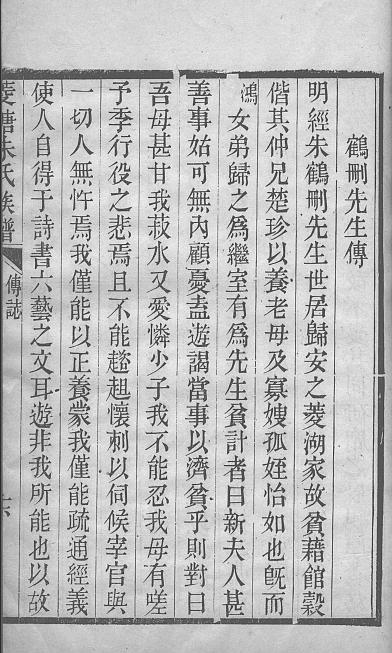 鶴刪先生傳
明經朱鶴刪先生世居歸安之菱湖家故貧藉館穀
偕其仲兄楚珍以養老母及寡嫂孤姪怡如也旣而
鴻女弟歸之爲繼室有爲先生貧計者曰新夫人甚
善事姑可無內顧憂盍遊謁當事以濟貧乎則對曰
吾母甚甘我菽水又愛憐少子我不能忍我母有嗟
予季行役之悲焉且不能趦趄懷刺以伺候宰官與
一切人無忤焉我僅能以正養蒙我僅能疏通經義
使人自得于詩書六藝之文耳遊非我所能也以故
菱塘朱氏族譜
傳誌